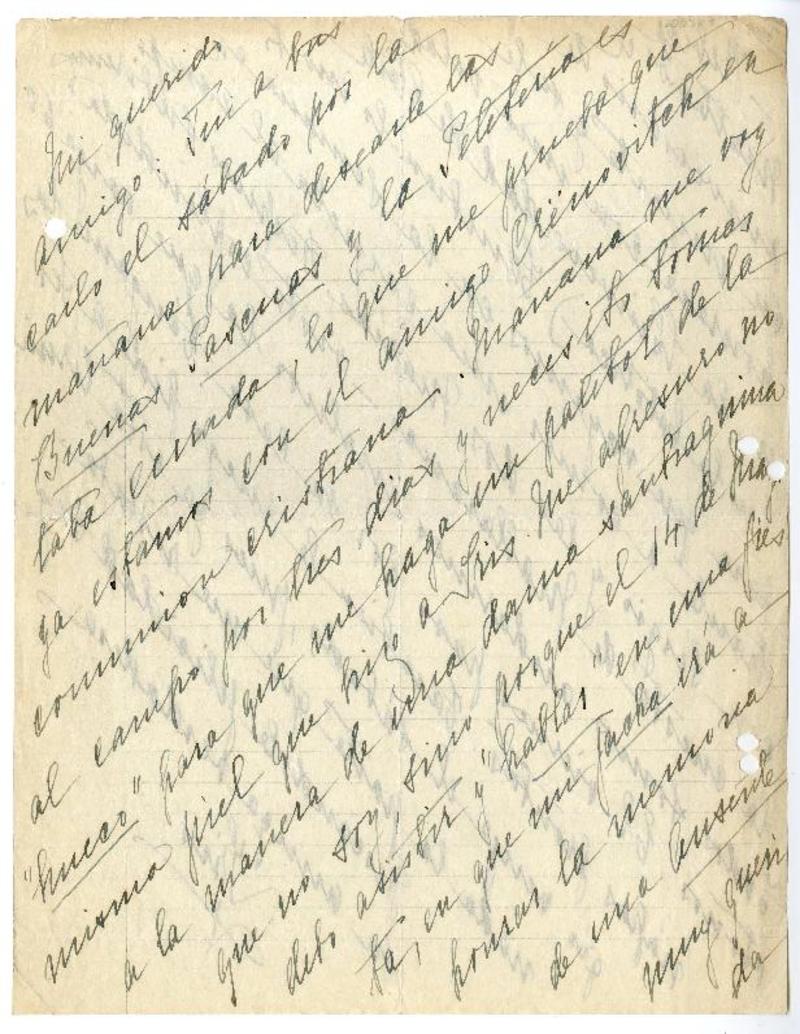 Mi querido
amigo: Fui a bus
carlo el sábado por la
mañana para desearle las
Buenas Pascuas y la Peletería es
taba cerrada, lo que me prueba que
ya estamos con el amigo Crënovitch en
communion cristiana. Mañana me voy
al campo por tres dias y necesito tomas
"hueco" para que me haga un paletot de la
misma piel que hizo a Iris. Me apresuro no
a la manera de una dama santiaguina
que no soy, sino porque el 14 de May.
debo asistir y "hablar" en una fies
ta, en que mi facha irá a
honrar la memoria
de una ausente
muy queri
da